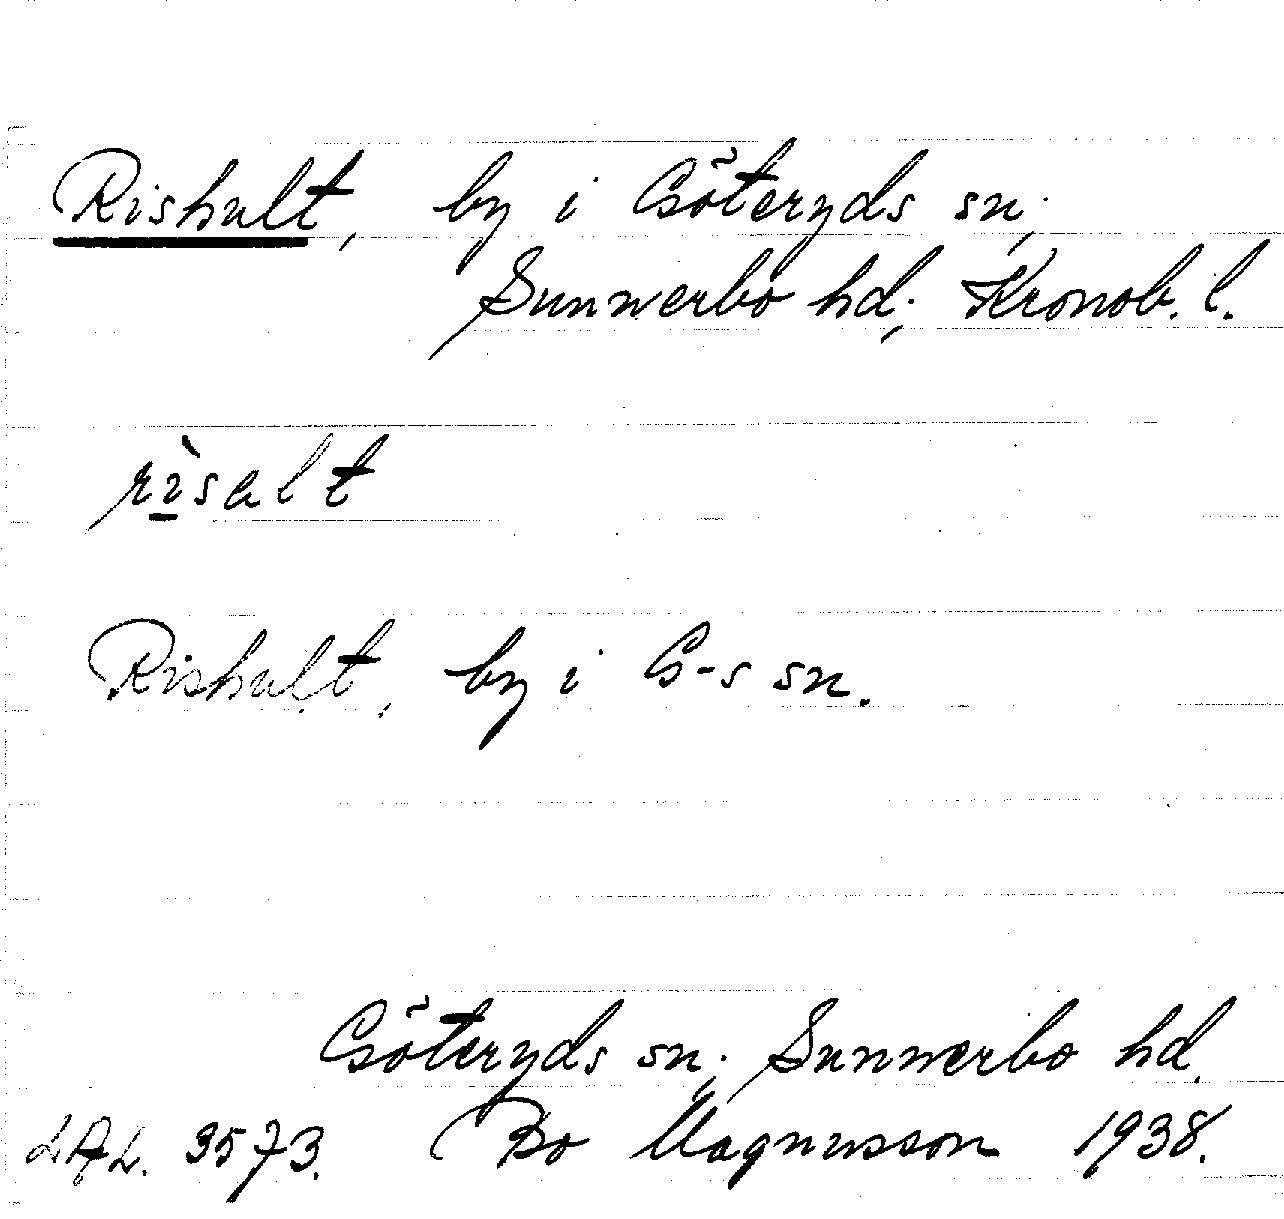 Rishult, by i Göteryds sn,
Sunnerbo hd, Kronob. l.
rìsalt
Rishult, by i G-s sn.
Göteryds sn, Sunnerbo hd.
LAL. 3573. Bo Magnusson 1938.